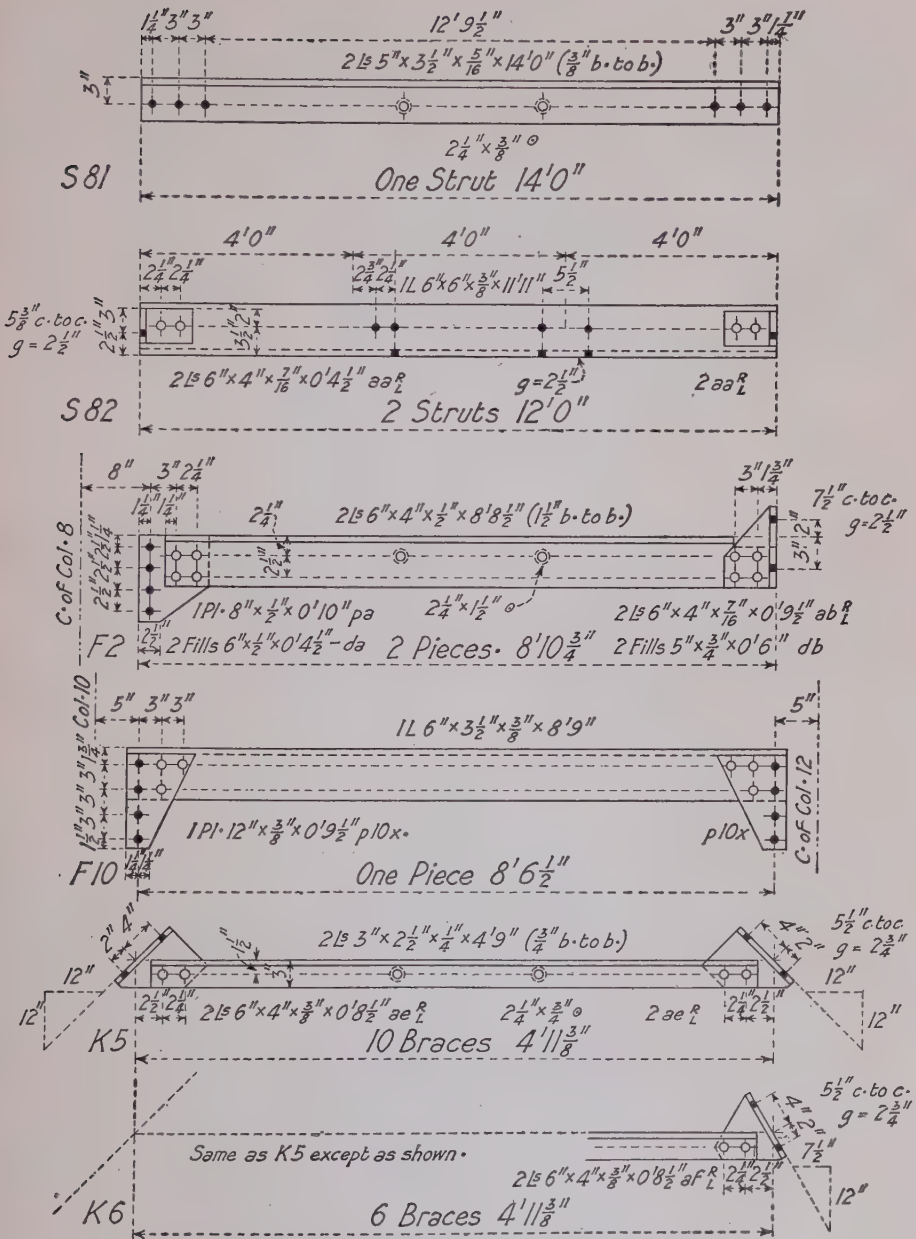 1 1/4" 3" 3" 12' 9 1/2" 3" 3" 1 1/4"
2 Ls 5" x 3 1/2" x 5/16" x 14'0" (3/8" b. to b.)
3"
2 1/4" x 3/8" ⊙
S81 One Strut 14'0"
4'0" 4'0" 4'0"
2 1/4" 2 1/4" 2 3/4" 2 1/4" 1L 6" x 6" x 3/8" x 11'11" 5 1/2"
5 3/8" c. to c.
g = 2 1/2"
2 1/2" 3" 3 1/2" 2"
2 Ls 6" x 4" x 7/16" x 0'4 1/2" aa R L g = 2 1/2" 2 aa R L
S82 2 Struts 12'0"
8" 3" 2 1/4" 3" 1 3/4"
1 1/4" 1 1/4" 2 1/4" 2 Ls 6" x 4" x 1/2" x 8'8 1/2" (1 1/2" b. to b.) 7 1/2" c. to c.
g = 2 1/2"
C. of Col. 8
2 1/2" 3" 2"
1 Pl. 8" x 1/2" x 0'10" pa 2 1/4" x 1 1/2" ⊙ 2 Ls 6" x 4" x 7/16" x 0'9 1/2" ab R L
2 1/2"
F2 2 Fills 6" x 1/2" x 0'4 1/2" - da 2 Pieces. 8'10 3/4" 2 Fills 5" x 3/4" x 0'6" db
5" Col. 10 3" 3" 1L 6" x 3 1/2" x 3/8" x 8'9" 5"
1 1/2" 3" 3" 1 3/4"
C. of Col. 12
1 Pl. 12" x 3/8" x 0'9 1/2" p10x. p10x
1 1/4" 1 1/4"
F10 One Piece 8'6 1/2"
2" 4" 2 Ls 3" x 2 1/2" x 1/4" x 4'9" (3/4" b. to b.) 4" 2" 5 1/2" c. to c.
g = 2 3/4"
12" 1 1/2" 3" 12"
12" 2 1/2" 2 1/4" 2 Ls 6" x 4" x 3/8" x 0'8 1/2" ae R L 2 1/4" x 3/4" ⊙ 2 ae R L 2 1/4" 2 1/2" 12"
K5 10 Braces 4'11 3/8"
4" 2" 5 1/2" c. to c.
g = 2 3/4"
Same as K5 except as shown. 7 1/2"
2 Ls 6" x 4" x 3/8" x 0'8 1/2" aF R L 2 1/4" 2 1/2" 12"
K6 6 Braces 4'11 3/8"